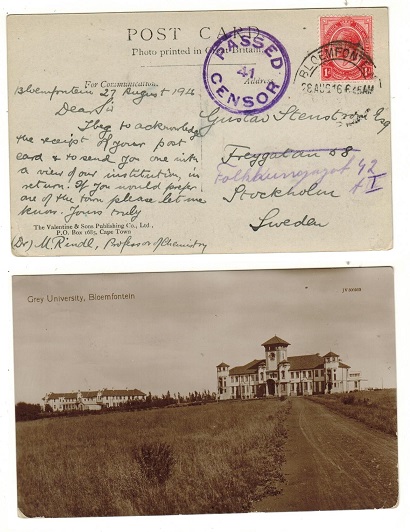 POST CARD
Photo printed in Great Britain
For Communication.
Address
PASSED
41
CENSOR
BLOEMFONT
28 AUG 16 6.45AM
Bloemfontein 27 August 1916
Dear Sir
I beg to acknowledge
the receipt of your post
card & to send you one with
a view of our institution, in
return. If you would prefer
one of the town please let me
know. Yours truly
(Dr) M. Rindl, Professor of Chemistry
The Valentine & Sons Publishing Co., Ltd.,
P.O. Box 1685, Cape Town
Gustav Esq
Freygatan 58
42
I
Stockholm
Sweden
Grey University, Bloemfontein